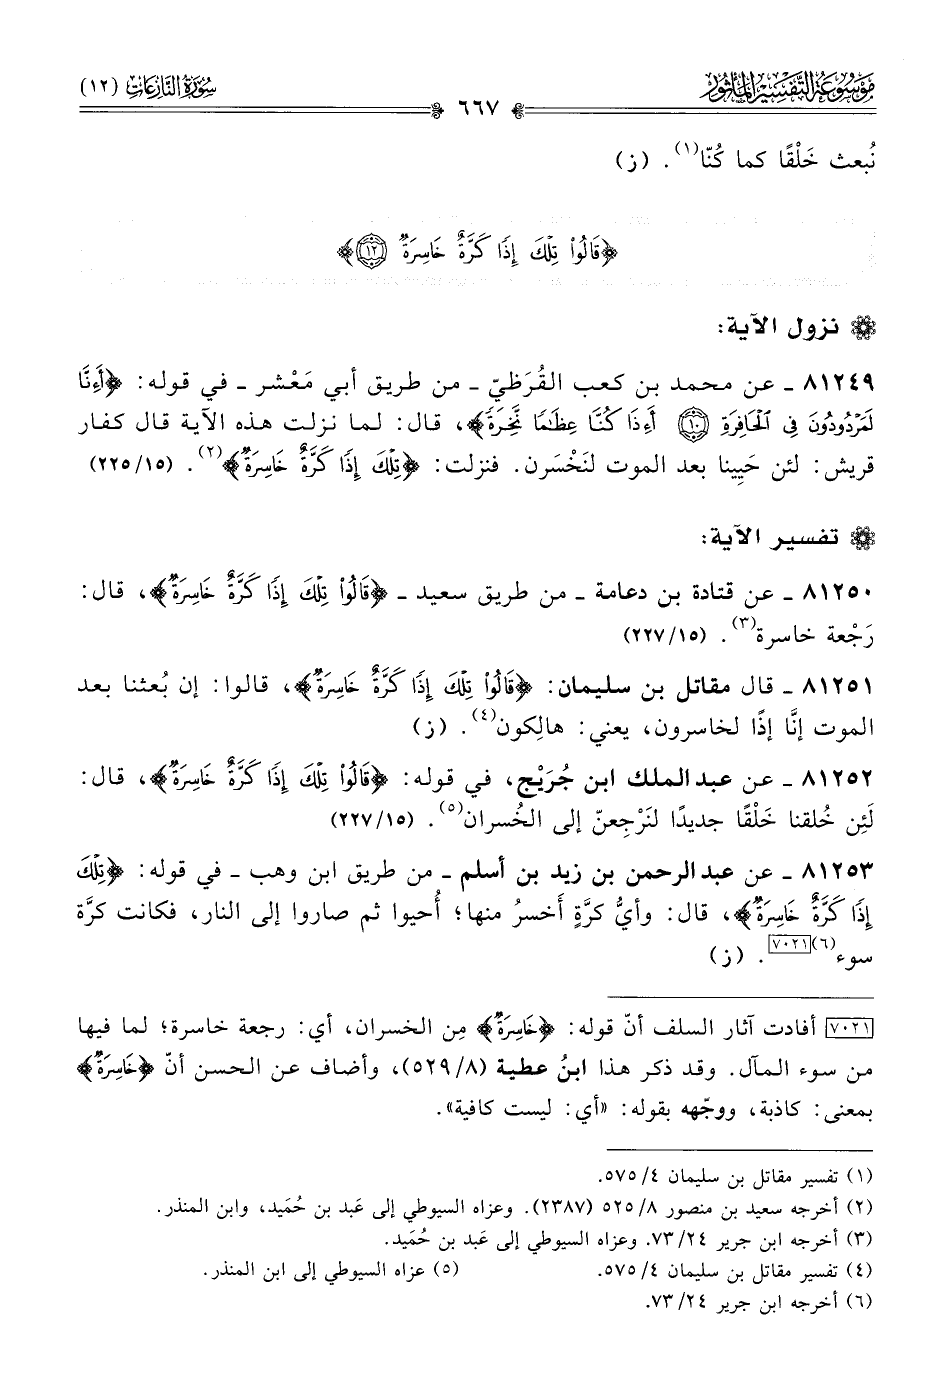 مَوْسُوعَة التَّفْسِير المَأْثُور
سُورَة النَّازِعَات (١٢)
٦٦٧
نُبعث خَلْقًا كما كُنّا(١). (ز)
﴿قَالُوا۟ تِلْكَ إِذًا كَرَّةٌ خَاسِرَةٌ ١٢﴾
نزول الآية:
٨١٢٤٩ ـ عن محمد بن كعب القُرَظيّ ـ من طريق أبي مَعْشر ـ في قوله: ﴿أَءِنَّا
لَمَرْدُودُونَ فِى ٱلْحَافِرَةِ ١٠ أَءِذَا كُنَّا عِظَـٰمًا نَّخِرَةً﴾، قال: لما نزلت هذه الآية قال كفار
قريش: لئن حَيِينا بعد الموت لنَخْسَرن. فنزلت: ﴿تِلْكَ إِذًا كَرَّةٌ خَاسِرَةٌ﴾(٢). (١٥/٢٢٥)
تفسير الآية:
٨١٢٥٠ ـ عن قتادة بن دعامة ـ من طريق سعيد ـ ﴿قَالُوا۟ تِلْكَ إِذًا كَرَّةٌ خَاسِرَةٌ﴾، قال:
رَجْعة خاسرة(٣). (١٥/٢٢٧)
٨١٢٥١ ـ قال مقاتل بن سليمان: ﴿قَالُوا۟ تِلْكَ إِذًا كَرَّةٌ خَاسِرَةٌ﴾، قالوا: إن بُعثنا بعد
الموت إنَّا إذًا لخاسرون، يعني: هالِكون(٤). (ز)
٨١٢٥٢ ـ عن عبد الملك ابن جُرَيْج، في قوله: ﴿قَالُوا۟ تِلْكَ إِذًا كَرَّةٌ خَاسِرَةٌ﴾، قال:
لَئِن خُلقنا خَلْقًا جديدًا لنَرْجِعنّ إلى الخُسران(٥). (١٥/٢٢٧)
٨١٢٥٣ ـ عن عبد الرحمن بن زيد بن أسلم ـ من طريق ابن وهب ـ في قوله: ﴿تِلْكَ
إِذًا كَرَّةٌ خَاسِرَةٌ﴾، قال: وأيُّ كرَّةٍ أَخسرُ منها؛ أُحيوا ثم صاروا إلى النار، فكانت كرَّة
سوء(٦)[٧٠٢١]. (ز)
[٧٠٢١] أفادت آثار السلف أنّ قوله: ﴿خَاسِرَةٌ﴾ مِن الخسران، أي: رجعة خاسرة؛ لما فيها
من سوء المآل. وقد ذكر هذا ابنُ عطية (٨/٥٢٩)، وأضاف عن الحسن أنّ ﴿خَاسِرَةٌ﴾
بمعنى: كاذبة، ووجّهه بقوله: «أي: ليست كافية».
(١) تفسير مقاتل بن سليمان ٤/٥٧٥.
(٢) أخرجه سعيد بن منصور ٨/٥٢٥ (٢٣٨٧). وعزاه السيوطي إلى عَبد بن حُمَيد، وابن المنذر.
(٣) أخرجه ابن جرير ٢٤/٧٣. وعزاه السيوطي إلى عَبد بن حُمَيد.
(٤) تفسير مقاتل بن سليمان ٤/٥٧٥. (٥) عزاه السيوطي إلى ابن المنذر.
(٦) أخرجه ابن جرير ٢٤/٧٣.